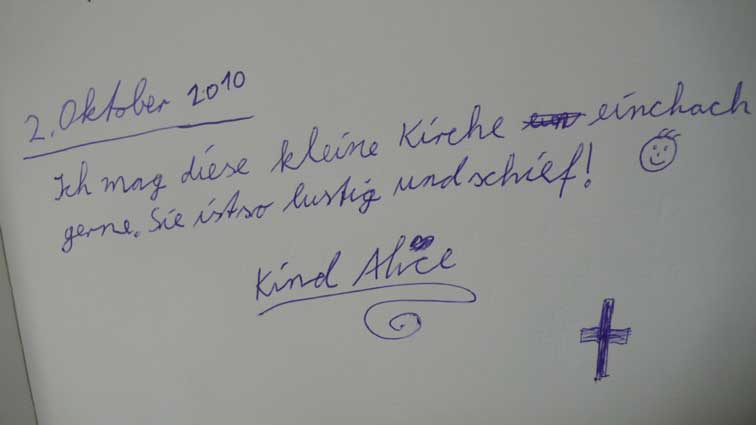 2. Oktober 2010
Ich mag diese kleine Kirche einchach
gerne. Sie ist so lustig und schief!
Kind Alice